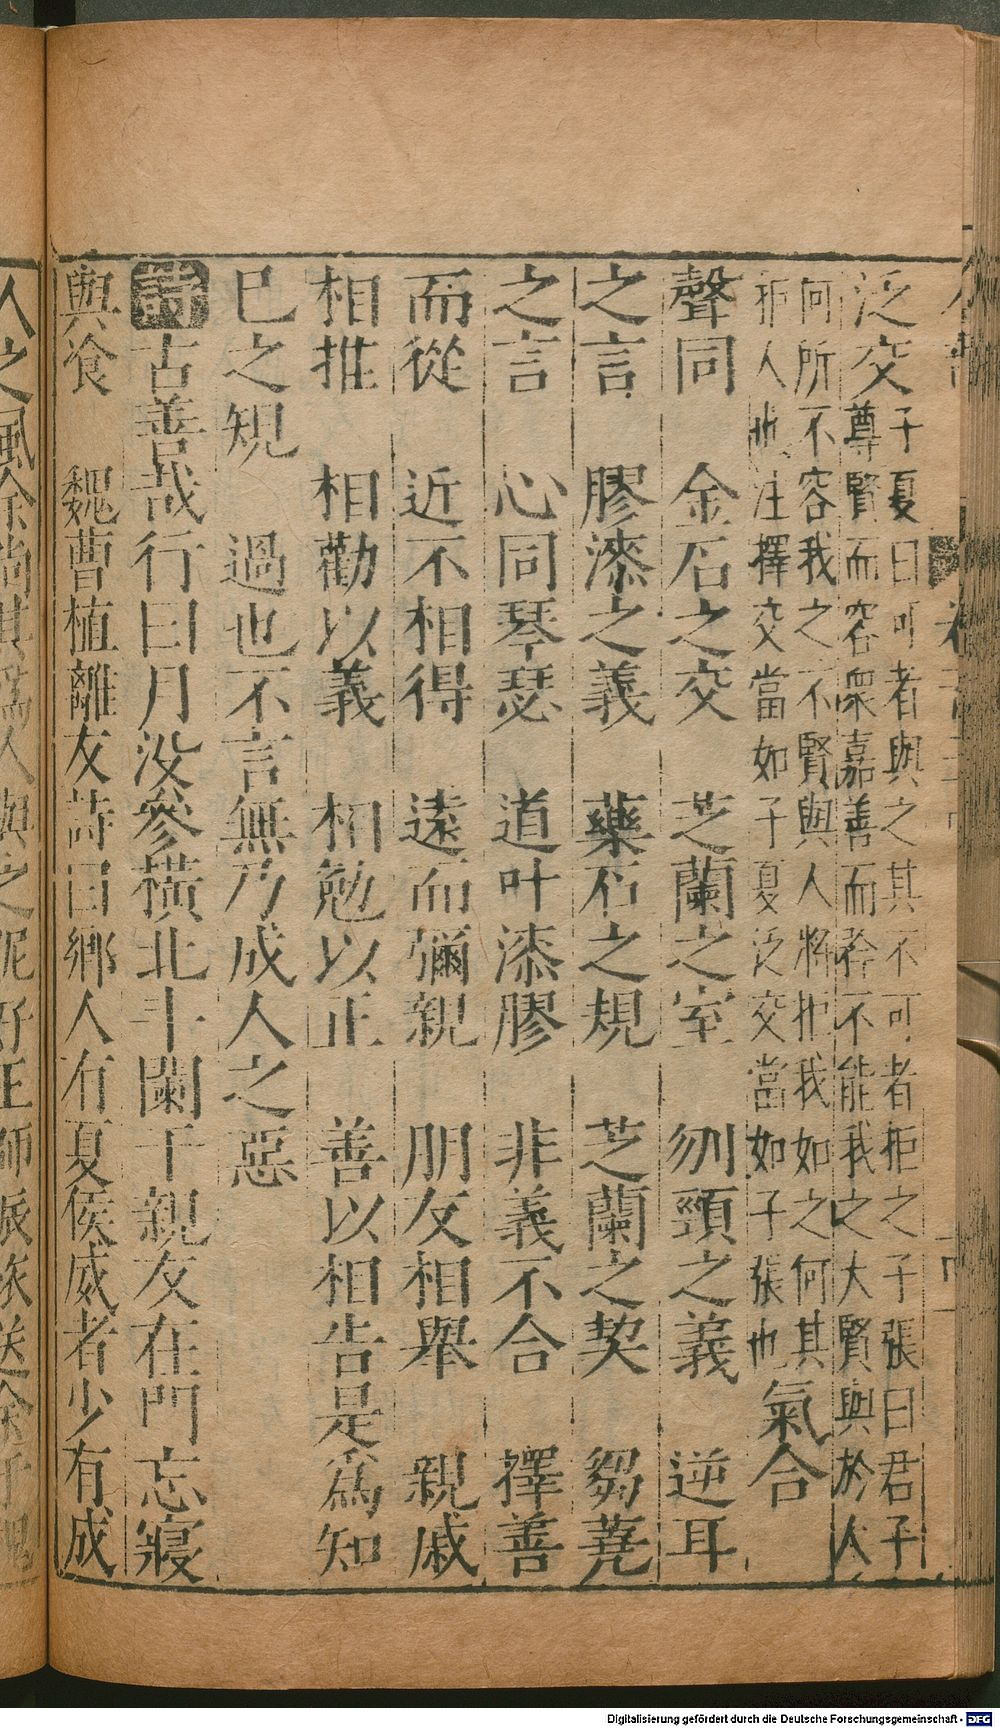 泛交子夏曰可者與之其不可者拒之子張曰君子
尊賢而容衆嘉善而矜不能我之大賢與於人
何所不容我之不賢與人將拒我如之何其
拒人也注擇交當如子夏泛交當如子張也氣合
聲同　金石之交　芝蘭之室　刎頸之義　逆耳
之言　膠漆之義　藥石之規　芝蘭之契　芻蕘
之言　心同琴瑟　道叶漆膠　非義不合　擇善
而從　近不相得　遠而彌親　朋友相舉　親戚
相推　相勸以義　相勉以正　善以相告是爲知
已之規　過也不言無乃成人之惡
古善哉行曰月没參橫北斗闌干親友在門忘寢
與飡　魏曹植離友詩曰鄉人有夏侯威者少有成
人之風余尚其爲人與之昵好王師振旅送余于魏
Digitalisierung gefördert durch die Deutsche Forschungsgemeinschaft - DFG